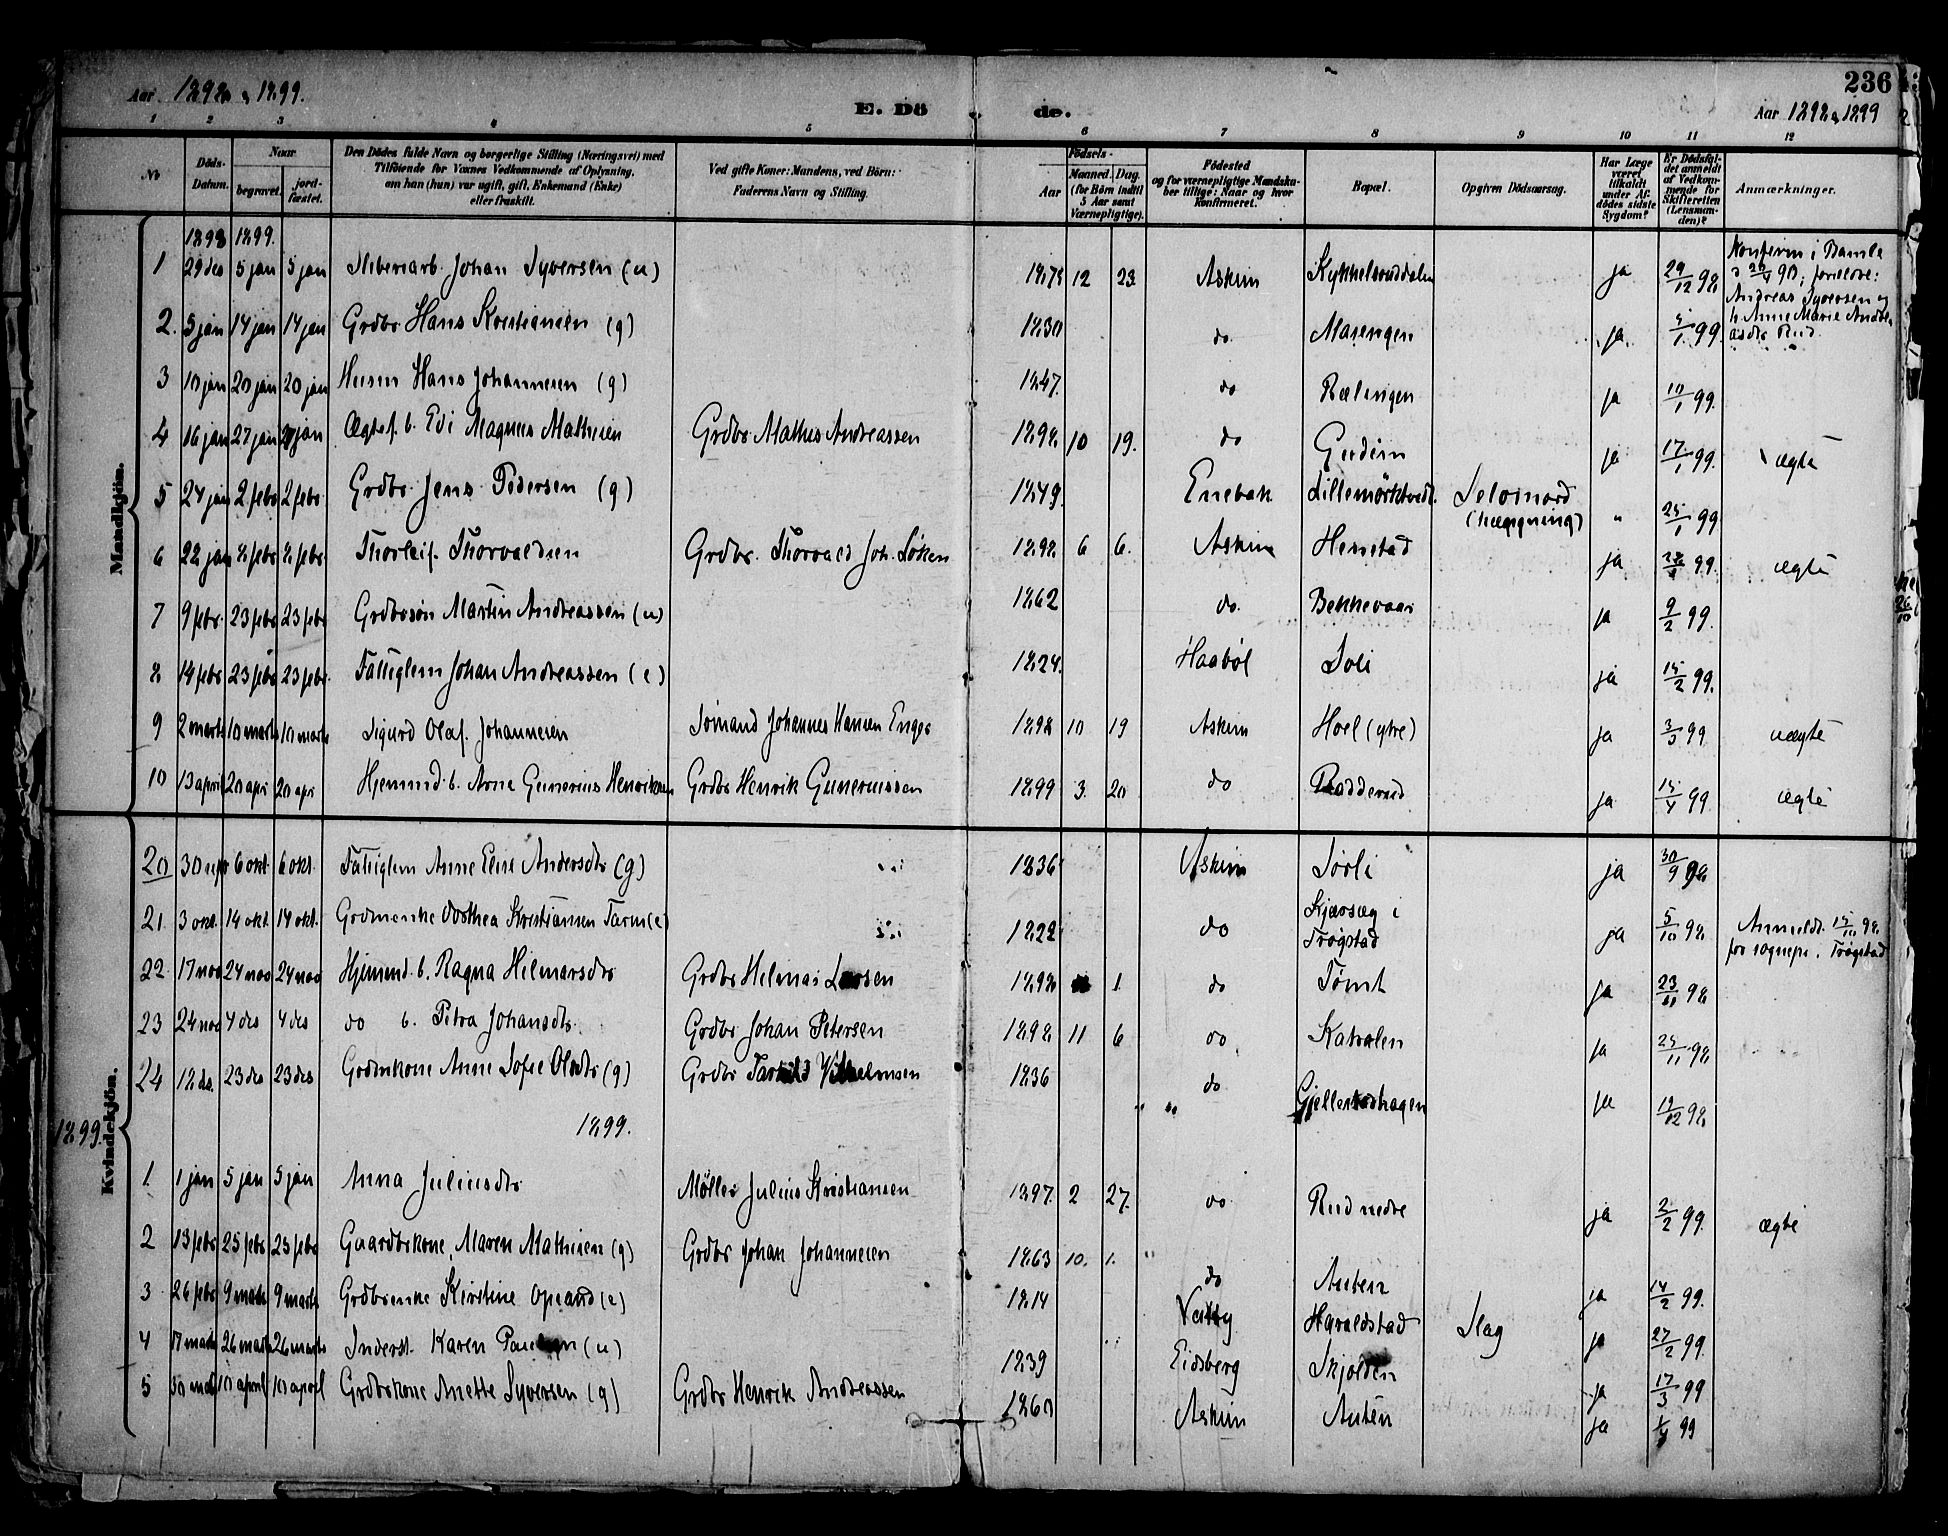 236
Aar 1898 & 1899.
E. Döde.
Aar 1898 & 1899
1 2 3 4 5 6 7 8 9 10 11 12
No
Döds-Datum.
Naar
begravet.
jordfæstet.
Den Dödes fulde Navn og borgerlige Stilling (Næringsvei) med
Tilföiende for Voxnes Vedkommende af Oplysning,
om han (hun) var ugift, gift, Enkemand (Enke)
eller fraskilt.
Ved gifte Koner: Mandens, ved Börn:
Faderens Navn og Stilling.
Födsels-
Aar
Maaned. Dag.
(for Börn indtil
5 Aar samt
Værnepligtige).
Födested
og for værnepligtige Mandskaber tillige: Naar og hvor
Konfirmeret.
Bopæl.
Opgiven Dödsaarsag.
Har Læge
været
tilkaldt
under Afdödes sidste
Sygdom?
Er Dödsfaldet anmeldt
af Vedkommende for
Skifteretten
(Lensmanden)?
Anmærkninger.
Mandkjön.
1898 1899.
1 29 des 5 jan 5 jan Sliberiarb. Johan Syversen (u) 1878 12 23 Askim Kykkelsruddalen ja 29/12 98
Konfirm i Bamle
90; foreldre:
Andreas Syversen og
h. Anne Marie
Rud.
2. 5 jan 14 jan 14 jan Grdbr Hans Kristiansen (g) 1830 do Masengen ja 5/1 99.
3 10 jan 20 jan 20 jan Husm Hans Johannesen (g) 1847. do Rælingen ja 10/1 99.
4 16 jan 27 jan 27 jan Ægtef. b. Edi Magnus Mathisen Grdbr Mathis Andreassen 1898 10 19. do ja 17/1 99. ægte
5 24 jan 2 febr 2 febr Grdbr Jens Pedersen (g) 1849. Enebak Selvmord
(hængning) " 25/1 99
6 22 jan febr febr Thorleif Thorvaldsen Grdbr. Thorvald Joh. Løken 1898 6 6. Askim Henstad ja 99. ægte
7 9 febr. 23 febr 23 febr Grdbrsøn Martin Andreassen (u) 1862 do. Bekkevaar ja 9/2 99.
8 14 febr 23 febr 23 febr Fattiglem Johan Andreassen (e) 1824. Haabøl Soli ja 15/2 99.
9 2 marts 10 marts 10 marts Sigurd Olaf Johannesen Sømand Johannes Hansen Enger 1898 10 19 Askim Hoel (ytre) ja 3/3 99 uægte
10 13 april 20 apr 20 apr Hjemmd. b. Arne Gunerius Henriksen Grdbr Henrik Guneriussen 1899 3. 20 do ja 15/4 99. ægte
Kvindekjön.
20 30 sept 6 okt 6 okt. Fattiglem Anne Elise Andersdtr (g) 1836 Askim Sørli ja 30/9 98
21. 3 okt. 14 okt. 14 okt. Grdmenke Dorthea Kristiansen Tarm (e) 1822 do Skjørsæg i
Trøgstad ja 5/10 98 Anmeldt 15/10 98
for sognepr. i Trøgstad
22. 17 nov 24 nov 24 nov Hjemmd. b. Ragna Hilmarsdtr Grdbr Helmar Larsen 1898 1. do Tømt ja 23/11 98
23 24 nov 4 des 4 des do b. Petra Johansdtr. Grdbr Johan Petersen 1898 11 6 do Katralen ja 25/11 98
24 18 ds. 23 des 23 des Grdmkone Anne Sofie Olsdtr (g) Grdbr Vilhelmsen 1836 do ja 19/12 98
1899. 1899.
1. 1 jan 5 jan 5 jan Anna Juliusdtr Møller Julius Kristiansen 1897 2 27. do Rud nedre ja 2/2 99. ægte
2 13 febr 25 febr 25 febr Gaardbrkone Maren Mathisen (g) Grdbr Johan Johannesen 1863 10. 1. do Auten ja 14/2 99.
3 26 febr 9 marts 9 marts Grdbrenke Kirstine Opsand (e) 1814 Haraldstad Slag ja 27/2 99.
4 17 marts 26 marts 26 marts Inderst. Karen (u) 1839 Eidsberg Skjolden ja 17/3 99
5 30 marts 10 april 10 april Grdbrkone Anette Syversen (g) Grdbr Henrik Andreassen 1860 Askim Auten ja 99